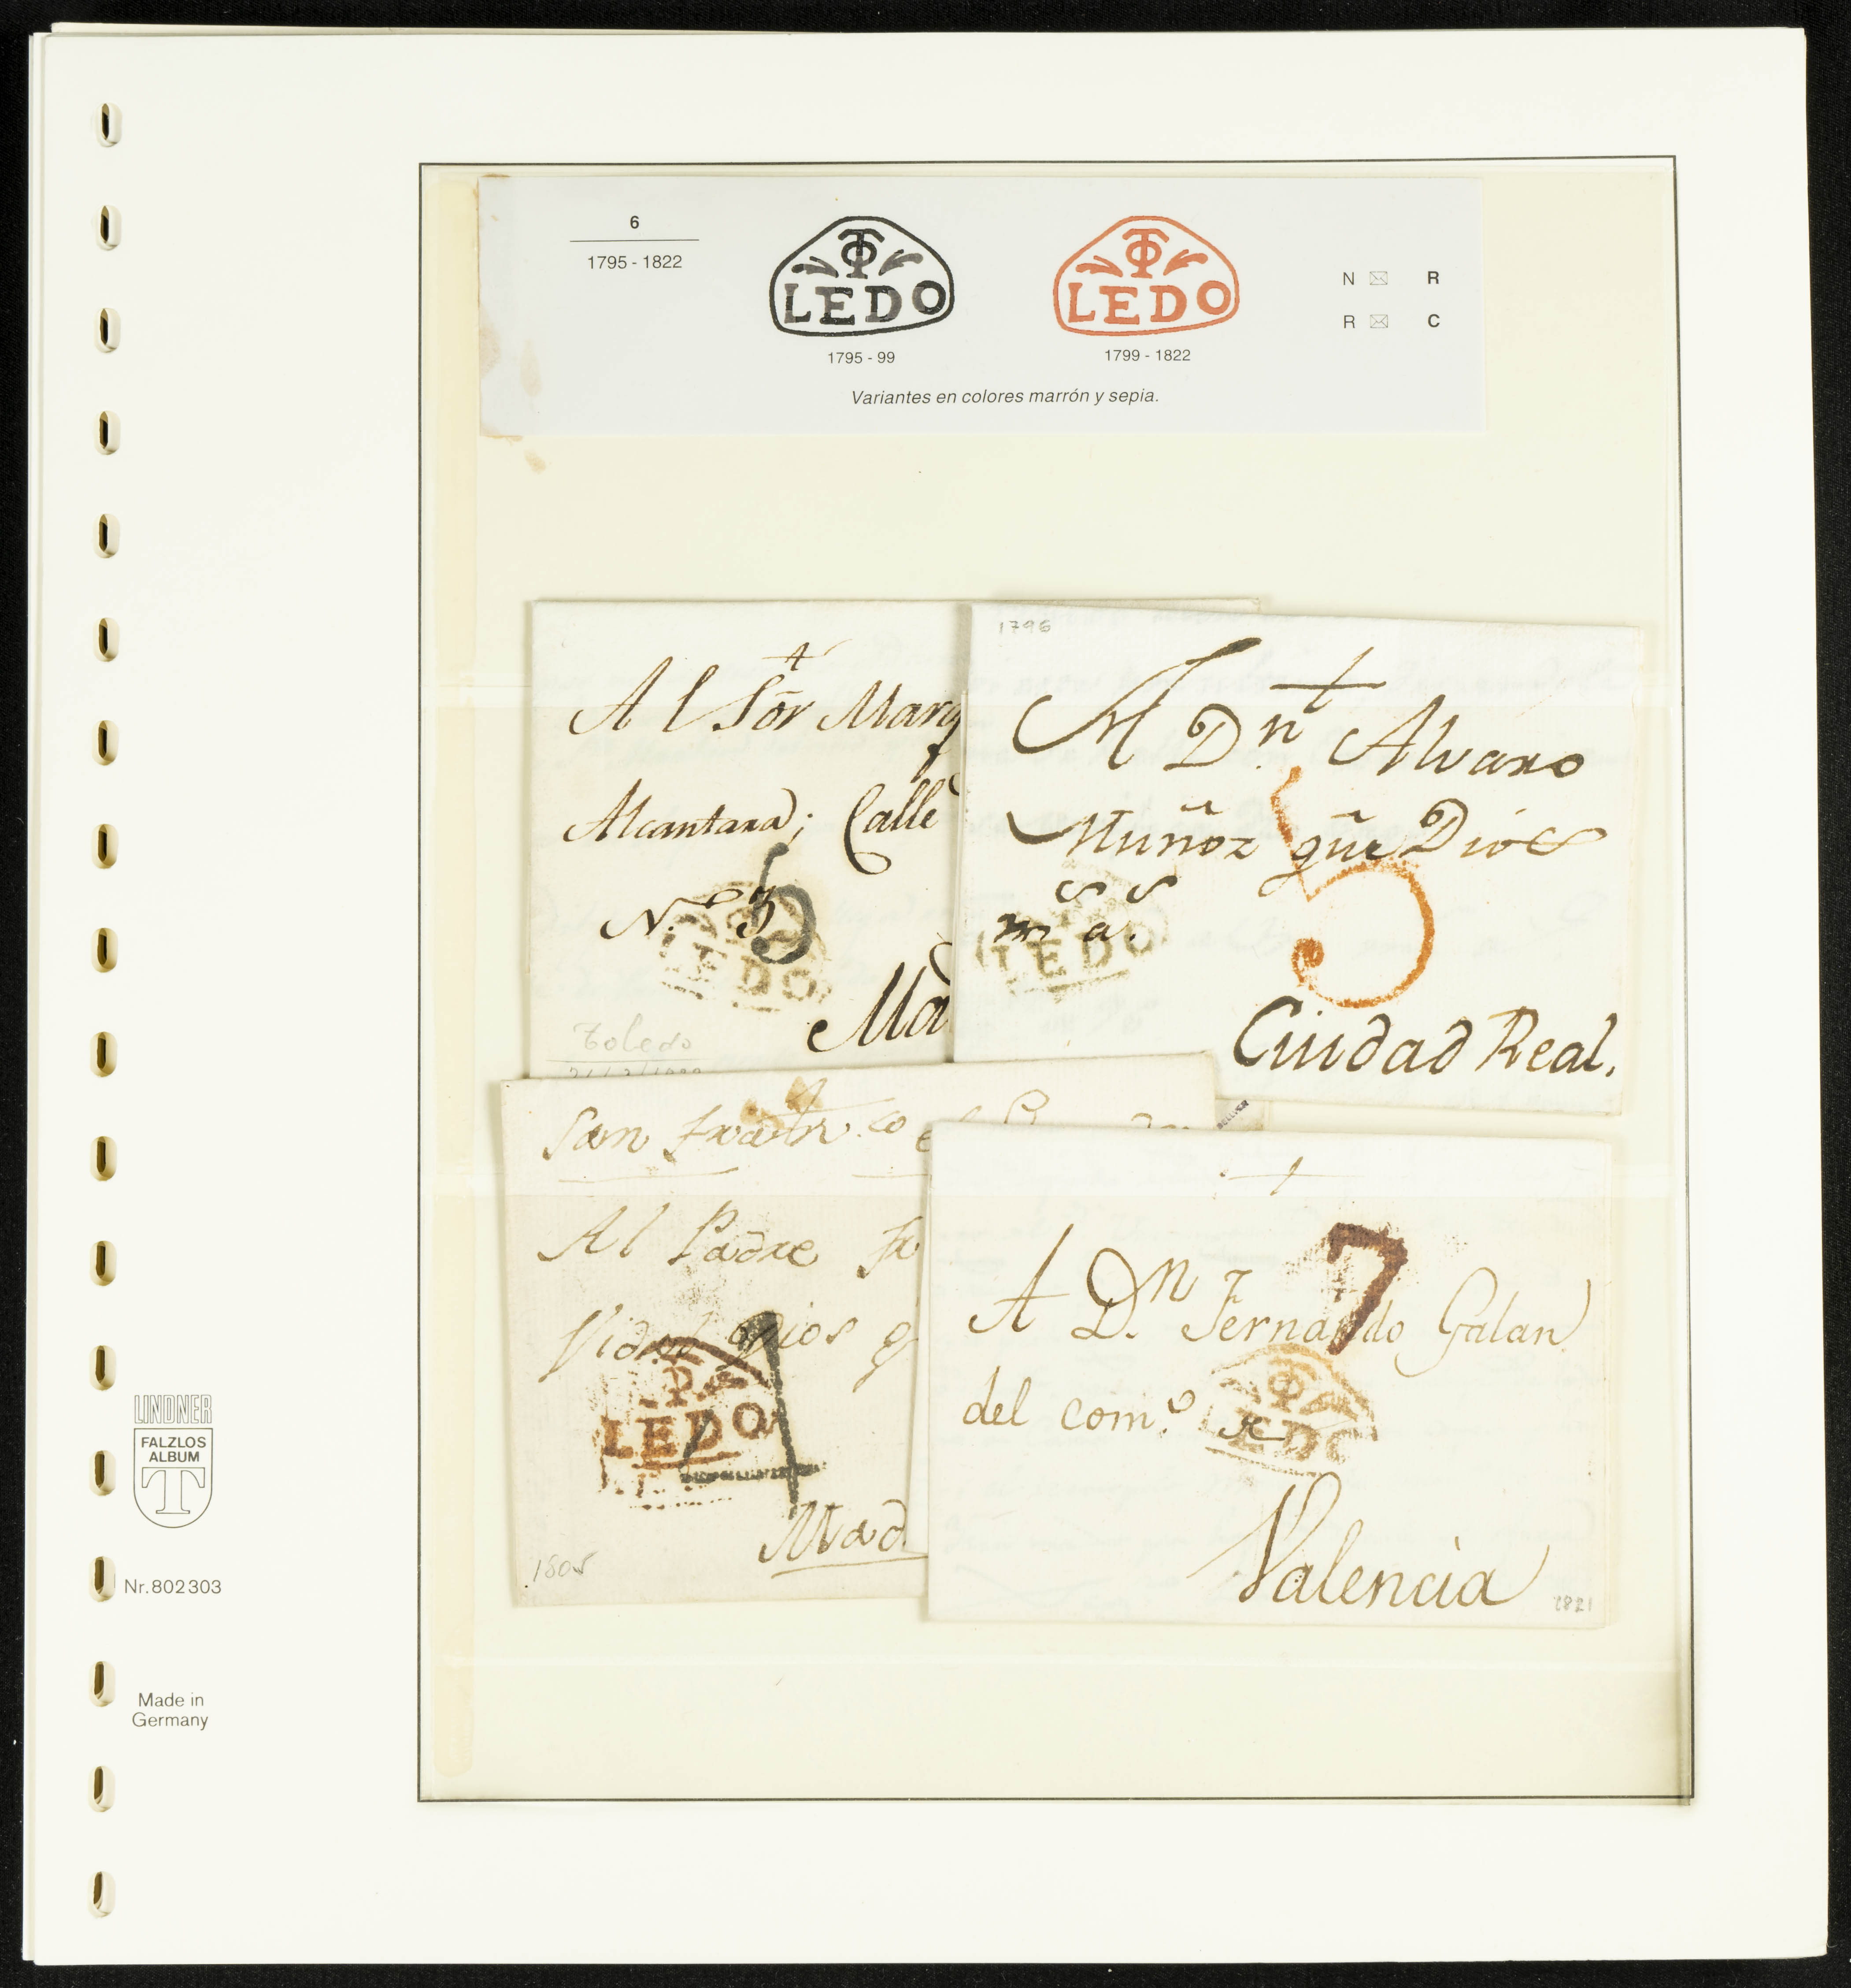 6
1795 - 1822
TO
LEDO
1795 - 99
TO
LEDO
1799 - 1822
N R
R C
Variantes en colores marrón y sepia.
Al Sõr Marq
Alcantara; Calle
Nº 3
5
LEDO
Mad
Toledo
1796
A Dn. Alvaro
Muñoz gũe Dios
m a.
5
LEDO
Ciudad Real.
San
Al Padre Fr
Dios g
TO
LEDO
Mad
1805
7
A Dn. Fernando Galan
del comº
TO
LEDO
Valencia
1821
LINDNER
FALZLOS
ALBUM
T
Nr. 802303
Made in
Germany